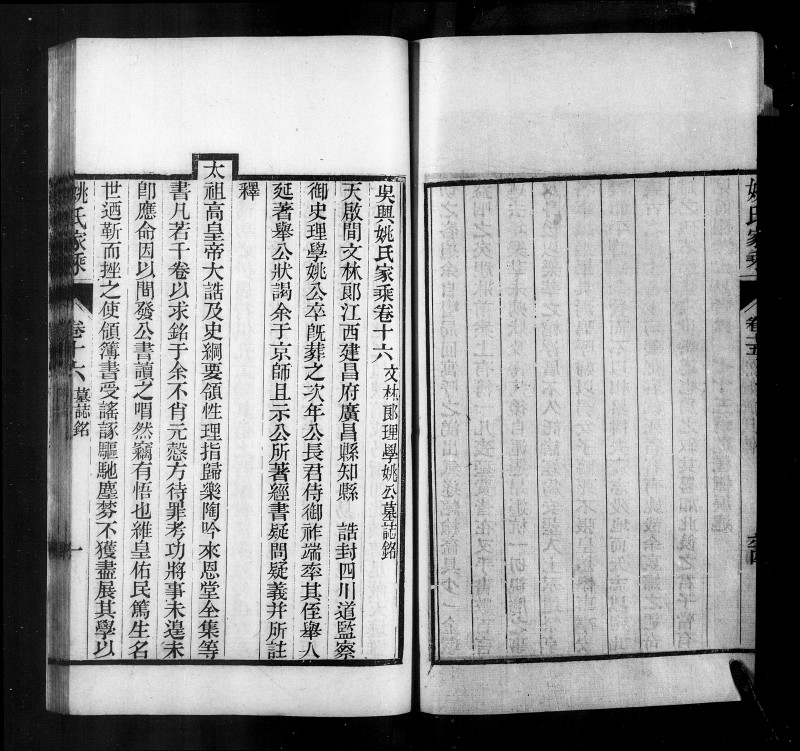 姚氏家乘
卷十五
吳興姚氏家乘卷十六 文林郎理學姚公墓誌銘
天啟間文林郎江西建昌府廣昌縣知縣 誥封四川道監察
御史理學姚公卒旣葬之次年公長君侍御祚端率其侄舉人
延著舉公狀謁余于京師且示公所著經書疑問疑義并所註
釋
太祖高皇帝大誥及史綱要領性理指歸樂陶吟來恩堂全集等
書凡若干卷以求銘于余不肖元慤方待罪考功將事未遑未
卽應命因以間發公書讀之喟然竊有悟也維皇佑民篤生名
世迺靳而挫之使領簿書受謠諑驅馳塵葊不獲盡展其學以
姚氏家乘
卷十六 墓誌銘
一